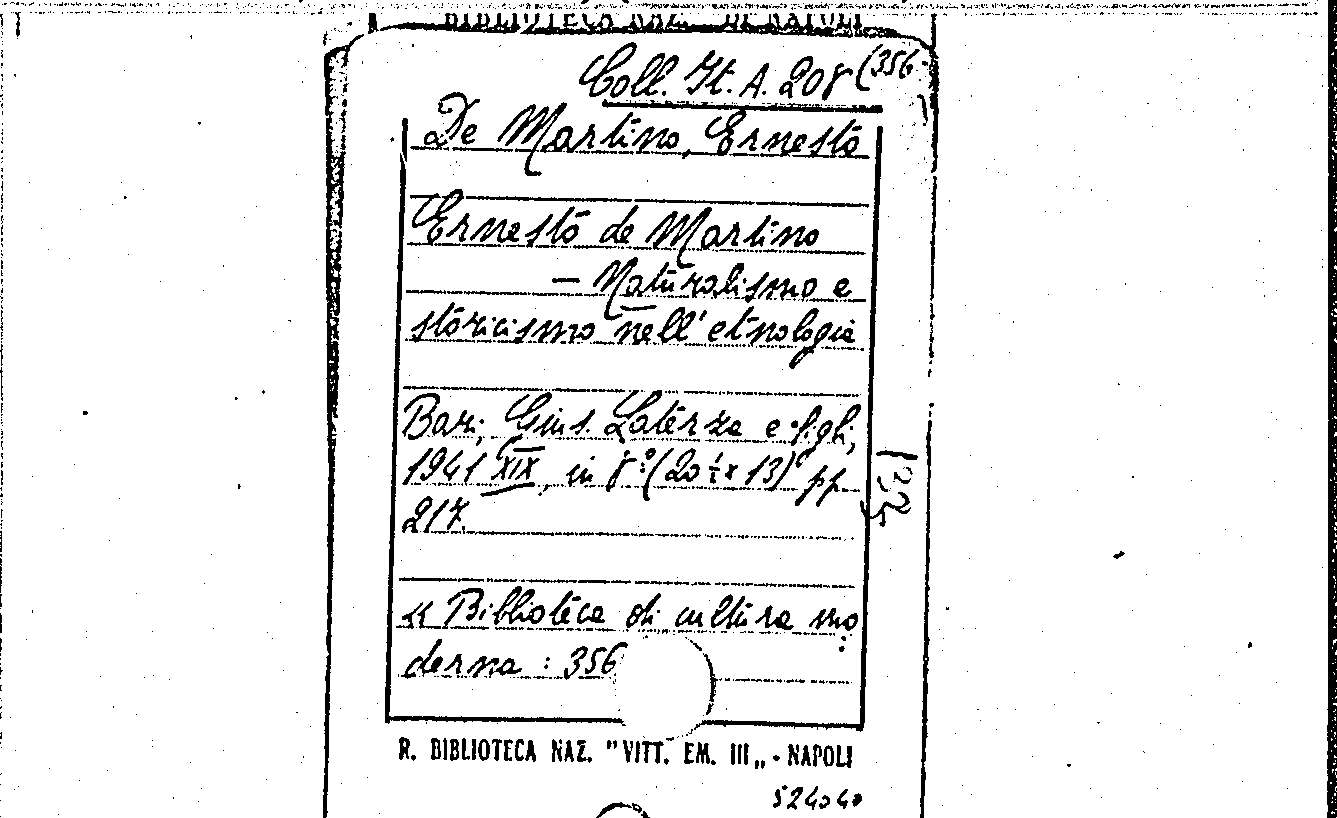 BIBLIOTECA NAZ. DI NAPOLI
Coll. It. A. 208 (356
De Martino, Ernesto
Ernesto de Martino
— Naturalismo e
storicismo nell'etnologia
Bari, Gius. Laterza e figli,
1941 XIX, in 8º (20 ½ x 13) pp.
217.
« Biblioteca di cultura mo
derna : 356
R. BIBLIOTECA NAZ. "VITT. EM. III„ - NAPOLI